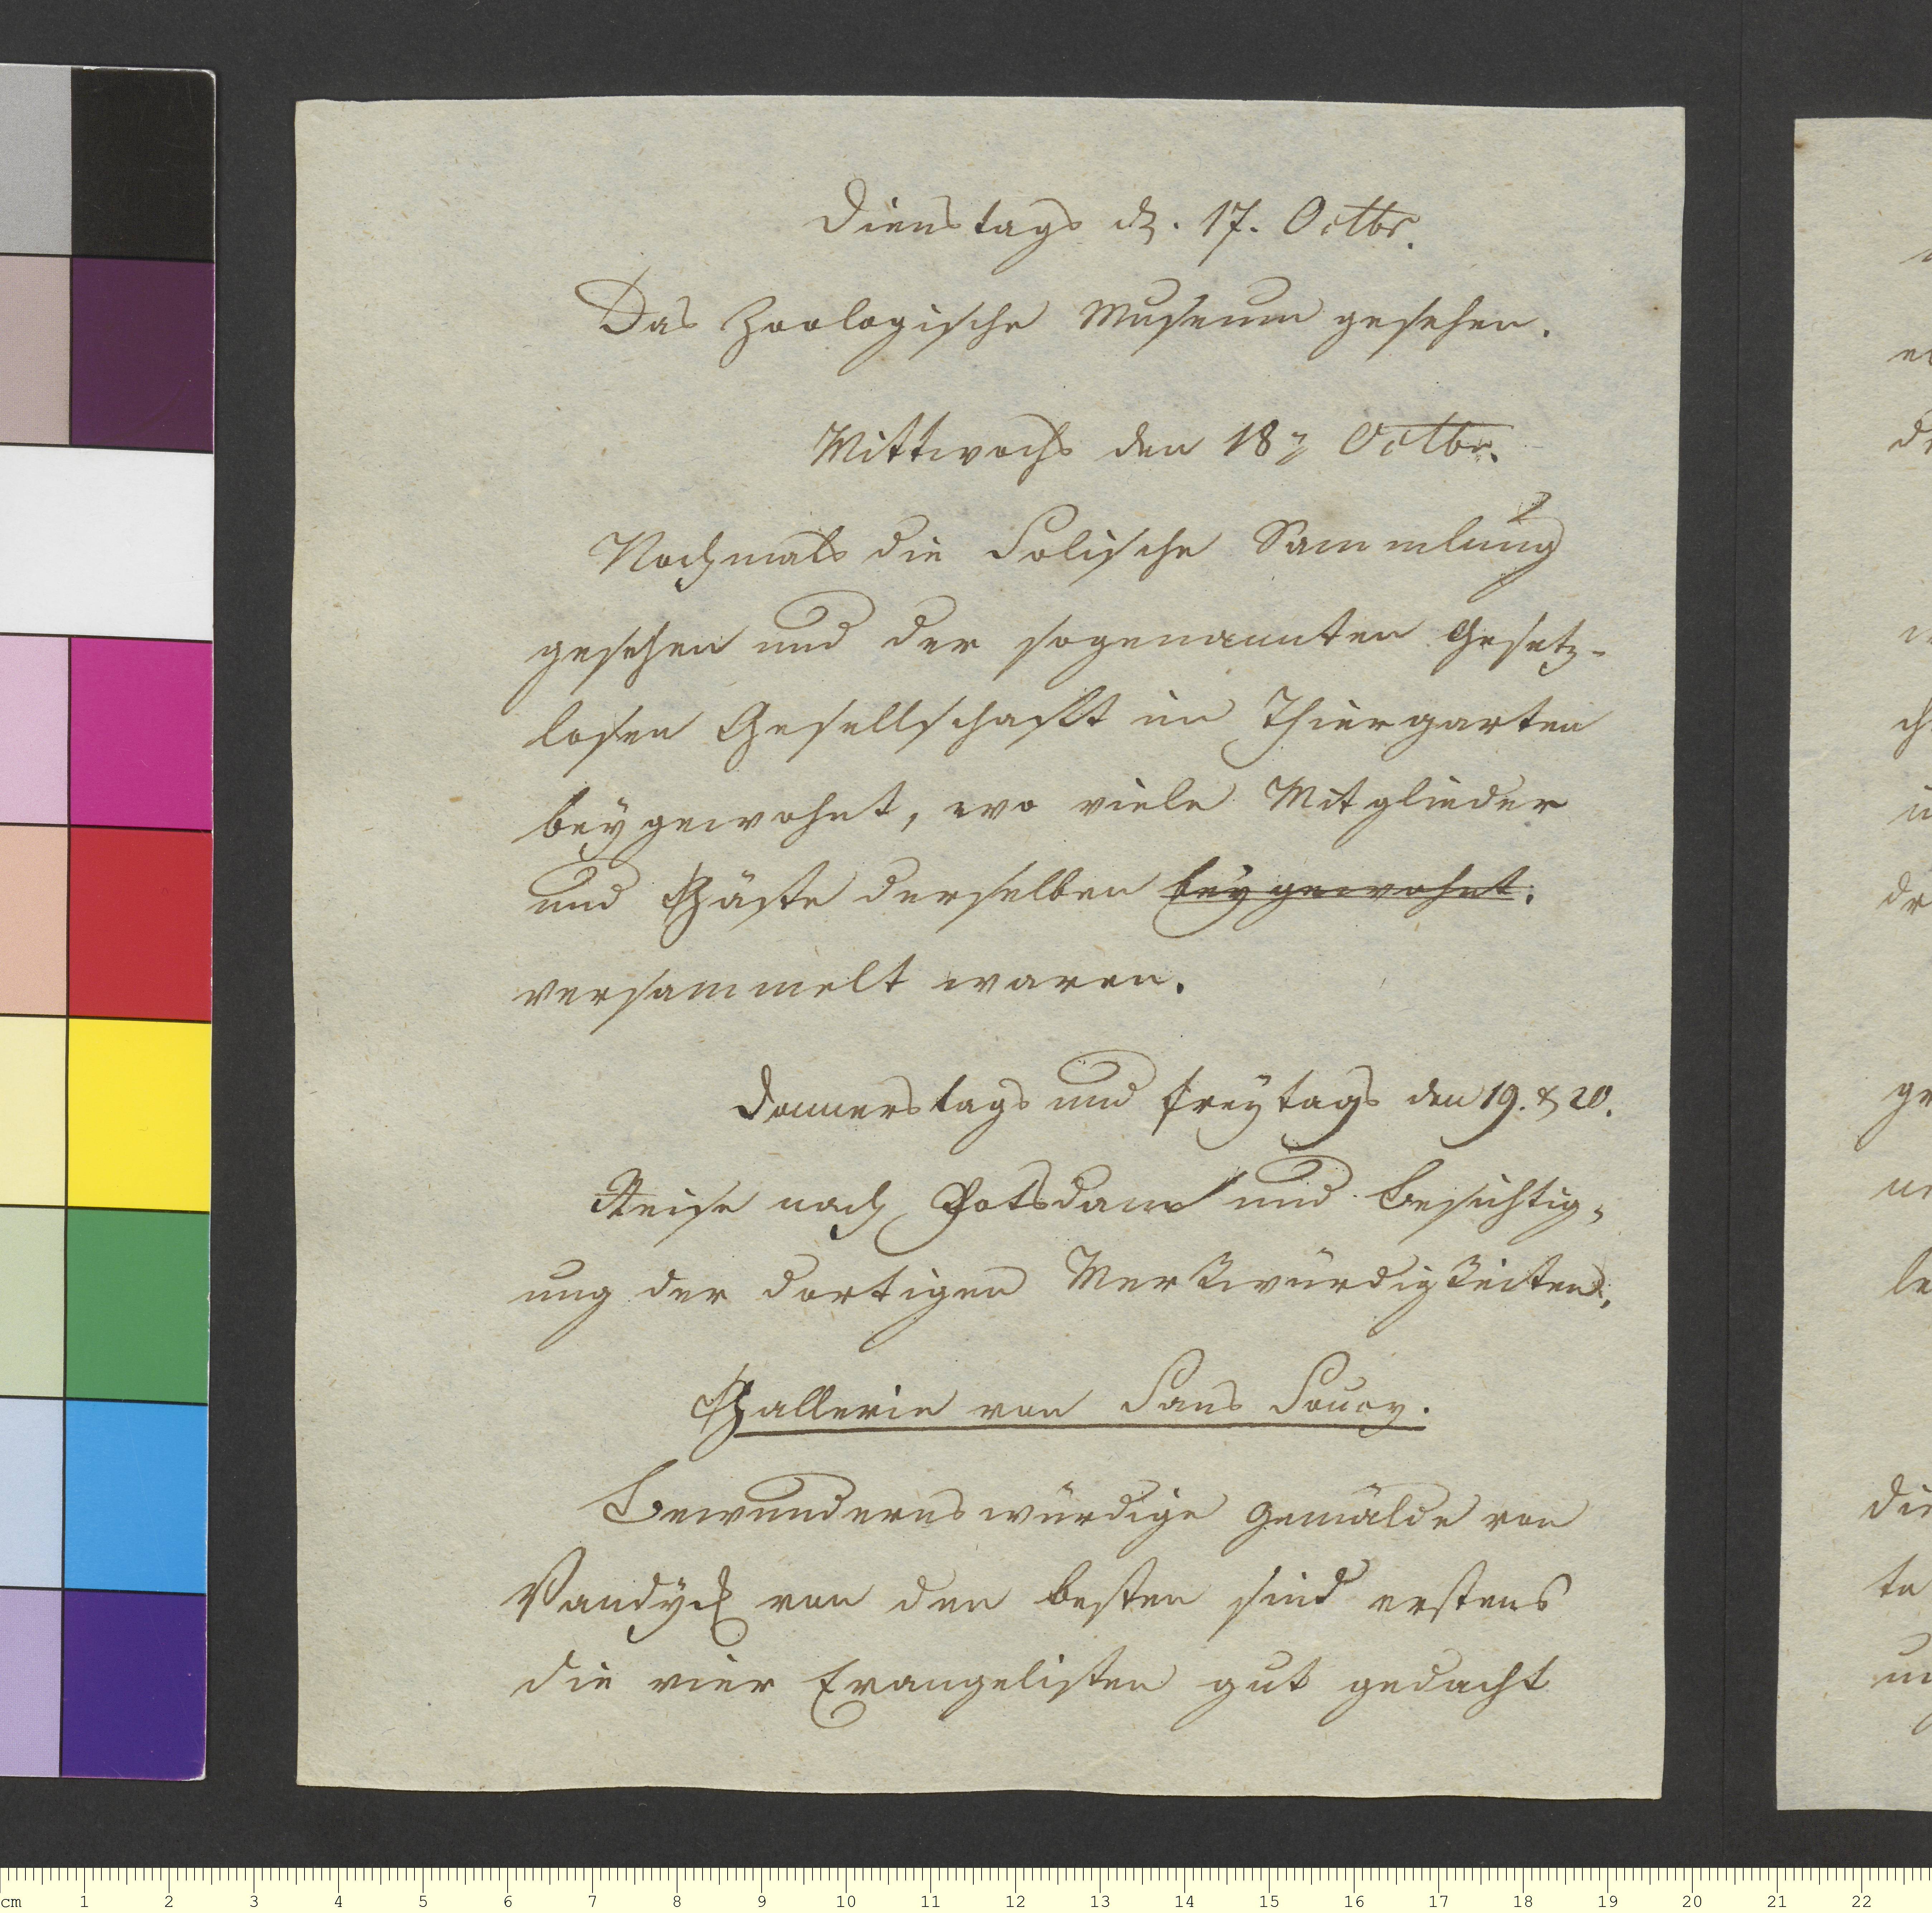 Dienstags d. 17. Octbr.
Das Zoologische Museum gesehen.
Mittwochs den 18 Octbr.
Nochmals die Solische Sammlung
gesehen und der sogenannten Gesetz-
losen Gesellschaft im Thiergarten
beygewohnt, wo viele Mitglieder
und Gäste derselben beygewohnt.
versammelt waren.
Donnerstags und Freytags den 19. & 20.
Reise nach Potsdam und Besichtig-
ung der dortigen Merkwürdigkeiten.
Gallerie von Sans Soucy.
Bewundernswürdige Gemälde von
Vandyck von den besten sind erstens
die vier Evangelisten gut gedacht
cm 1 2 3 4 5 6 7 8 9 10 11 12 13 14 15 16 17 18 19 20 21 22